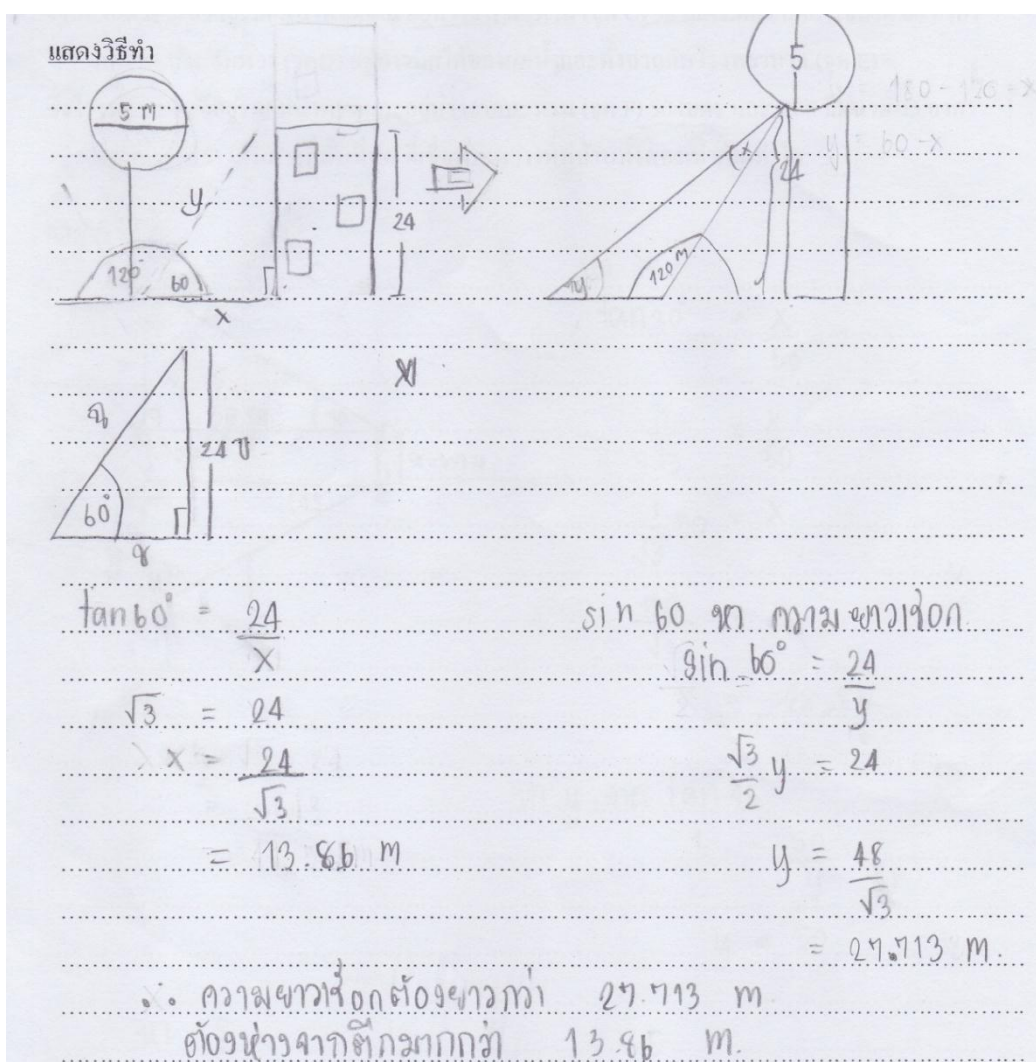 แสดงวิธีทำ
5 m
y
120°
60
x
24
5
x
24
y
120 m
180 - 120 = x
y = 60 - x
24 ข
60°
tan 60° = 24/x
√3 = 24
x = 24/√3
= 13.86 m
sin 60 หา ความยาวเชือก
sin 60° = 24/y
√3/2 y = 24
y = 48/√3
= 27.713 m.
∴ ความยาวเชือกต้องยาวกว่า 27.713 m
ต้องห่างจากตึกมากกว่า 13.86 m.